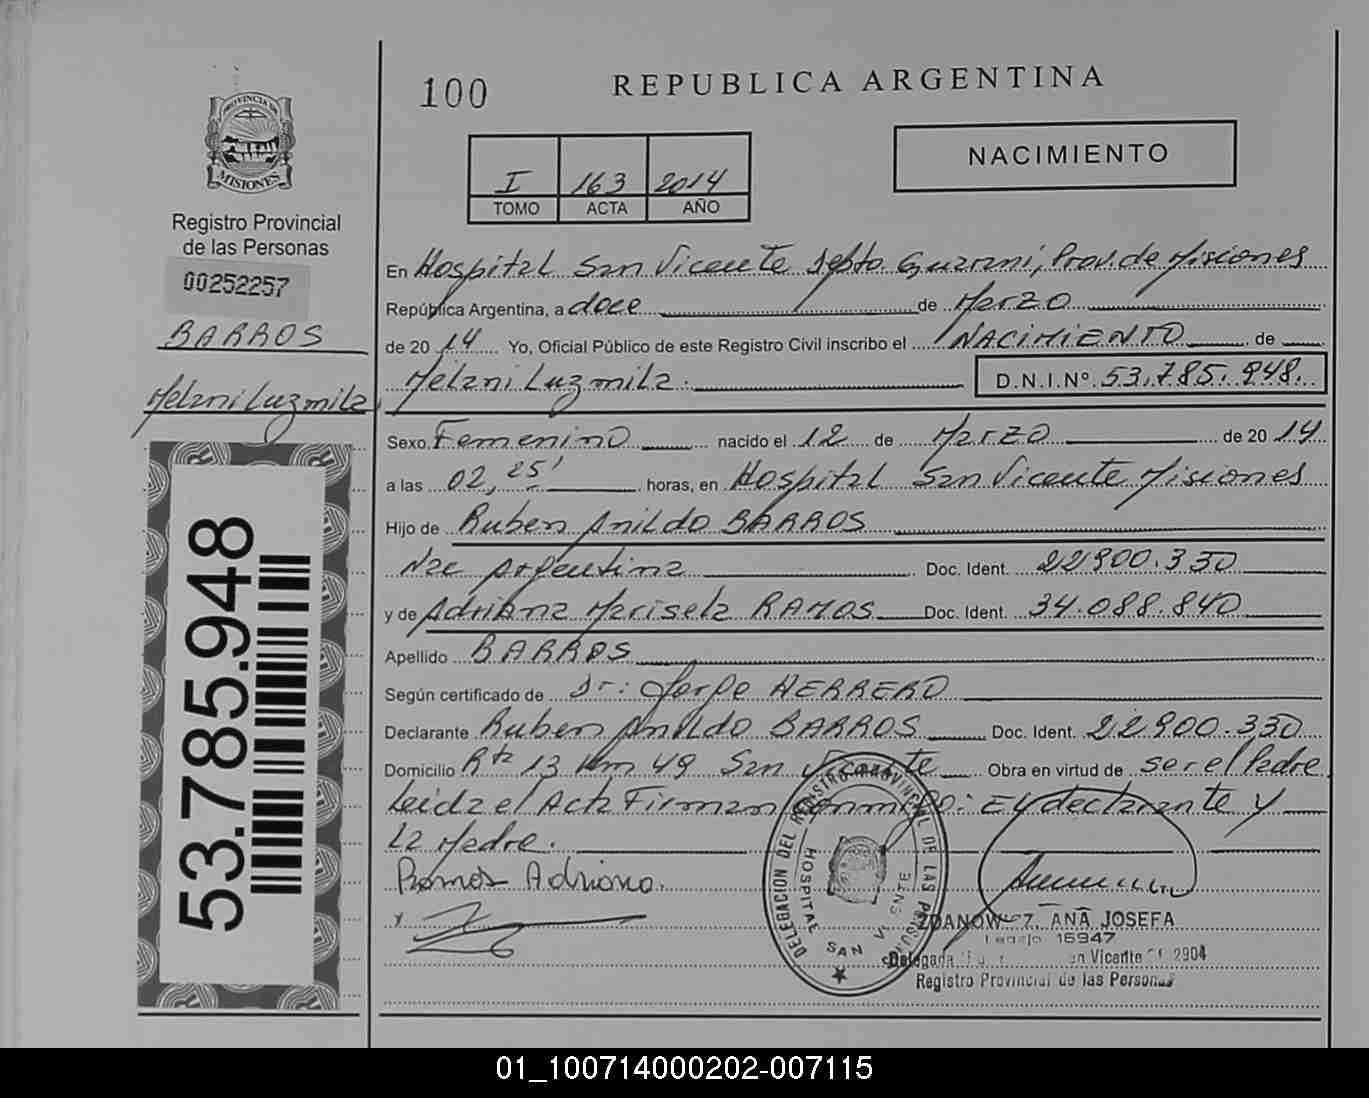 100
REPUBLICA ARGENTINA
PROVINCIA DE
MISIONES
Registro Provincial
de las Personas
00252257
BARROS
Melani Luzmila
53.785.948
I 163 2014
TOMO ACTA AÑO
NACIMIENTO
En Hospital San Vicente Depto Guarani, Prov. de Misiones
República Argentina, a doce de Marzo
de 20 14 Yo, Oficial Público de este Registro Civil inscribo el NACIMIENTO de
Melani Luzmila. D.N.I.Nº 53.785.948.
Sexo Femenino nacido el 12 de Marzo de 20 14
a las 02,25' horas, en Hospital San Vicente Misiones
Hijo de Ruben Anildo BARROS
Nac Argentina Doc. Ident. 22900.330
y de Adriana Marisela RAMOS Doc. Ident. 34.088.840
Apellido BARROS
Según certificado de Dr: Jorge HERRERO
Declarante Ruben Anildo BARROS Doc. Ident. 22900.330
Domicilio Rta 13 Km 49 San Vicente Obra en virtud de ser el Padre
Leida el Acta Firman conmigo: El declarante y
La Madre.
Ramos Adriana.
DELEGACION DEL REGISTRO PROVINCIAL DE LAS PERSONAS
HOSPITAL SAN VICENTE
ANA JOSEFA
Legajo 16947
Delegada San Vicente 2904
Registro Provincial de las Personas
01_100714000202-007115